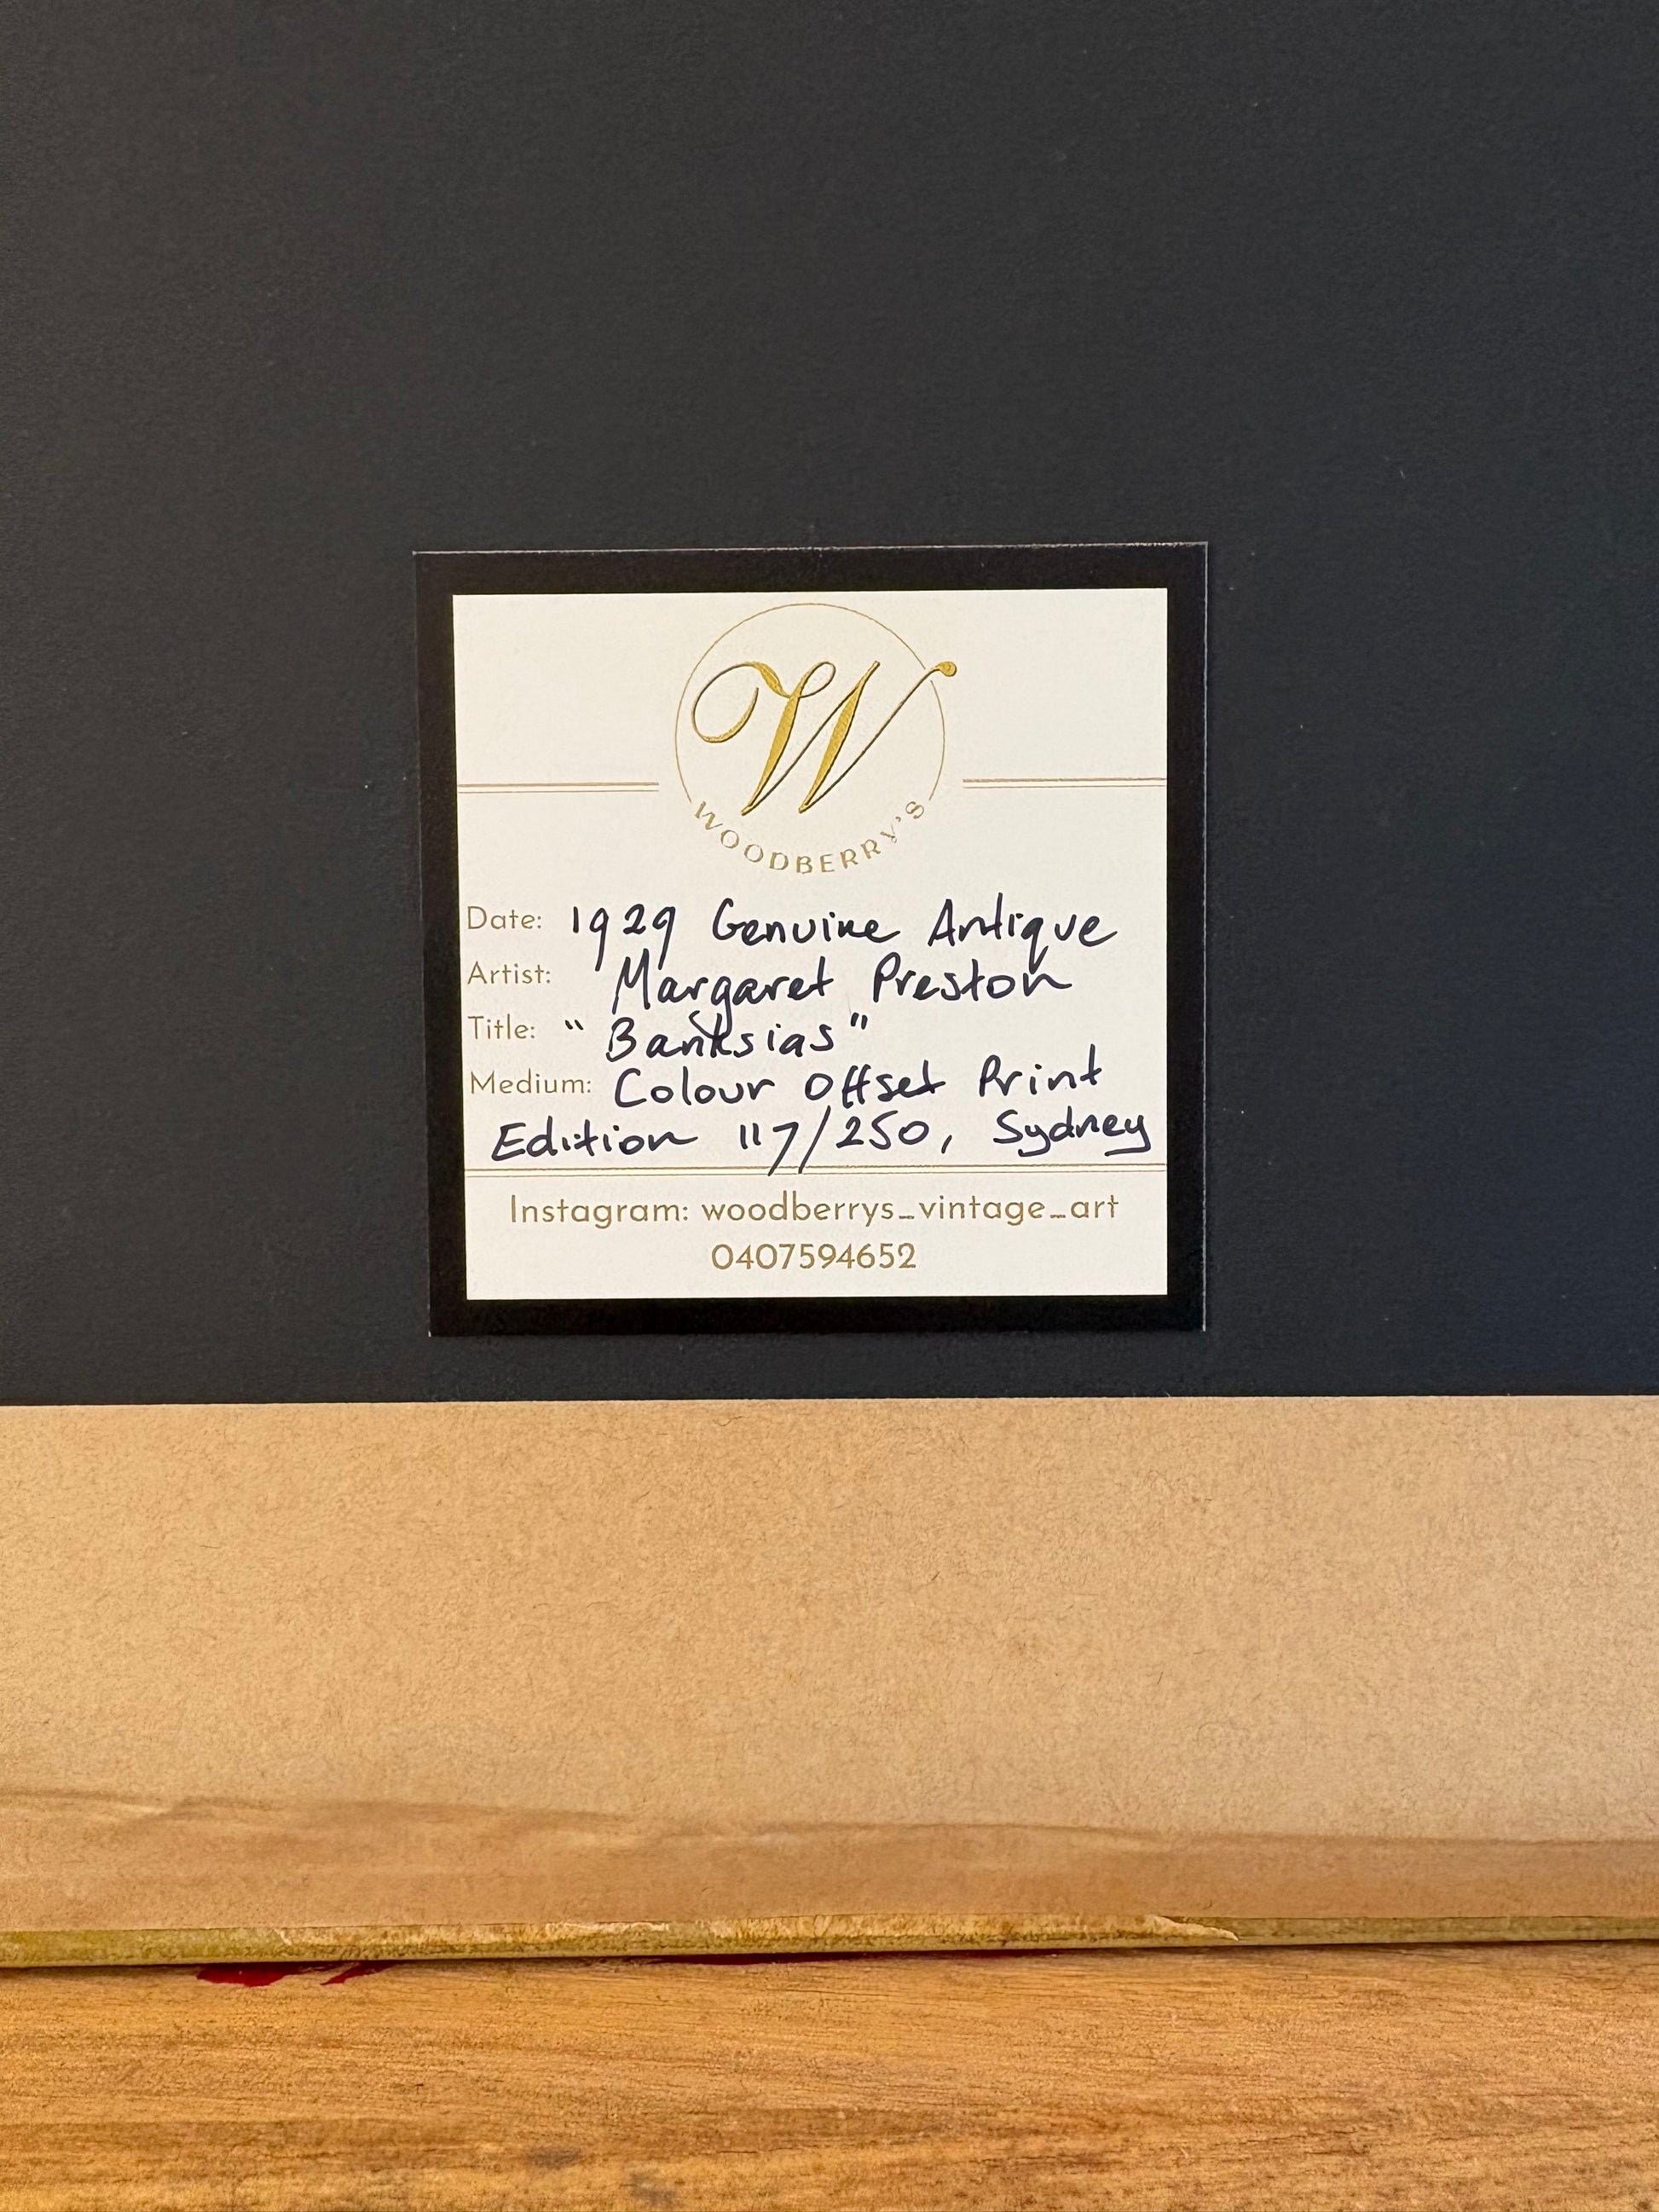 W
WOODBERRY'S
Date: 1929 Genuine Antique
Artist: Margaret Preston
Title: "Banksias"
Medium: Colour Offset Print
Edition 117/250, Sydney
Instagram: woodberrys_vintage_art
0407594652